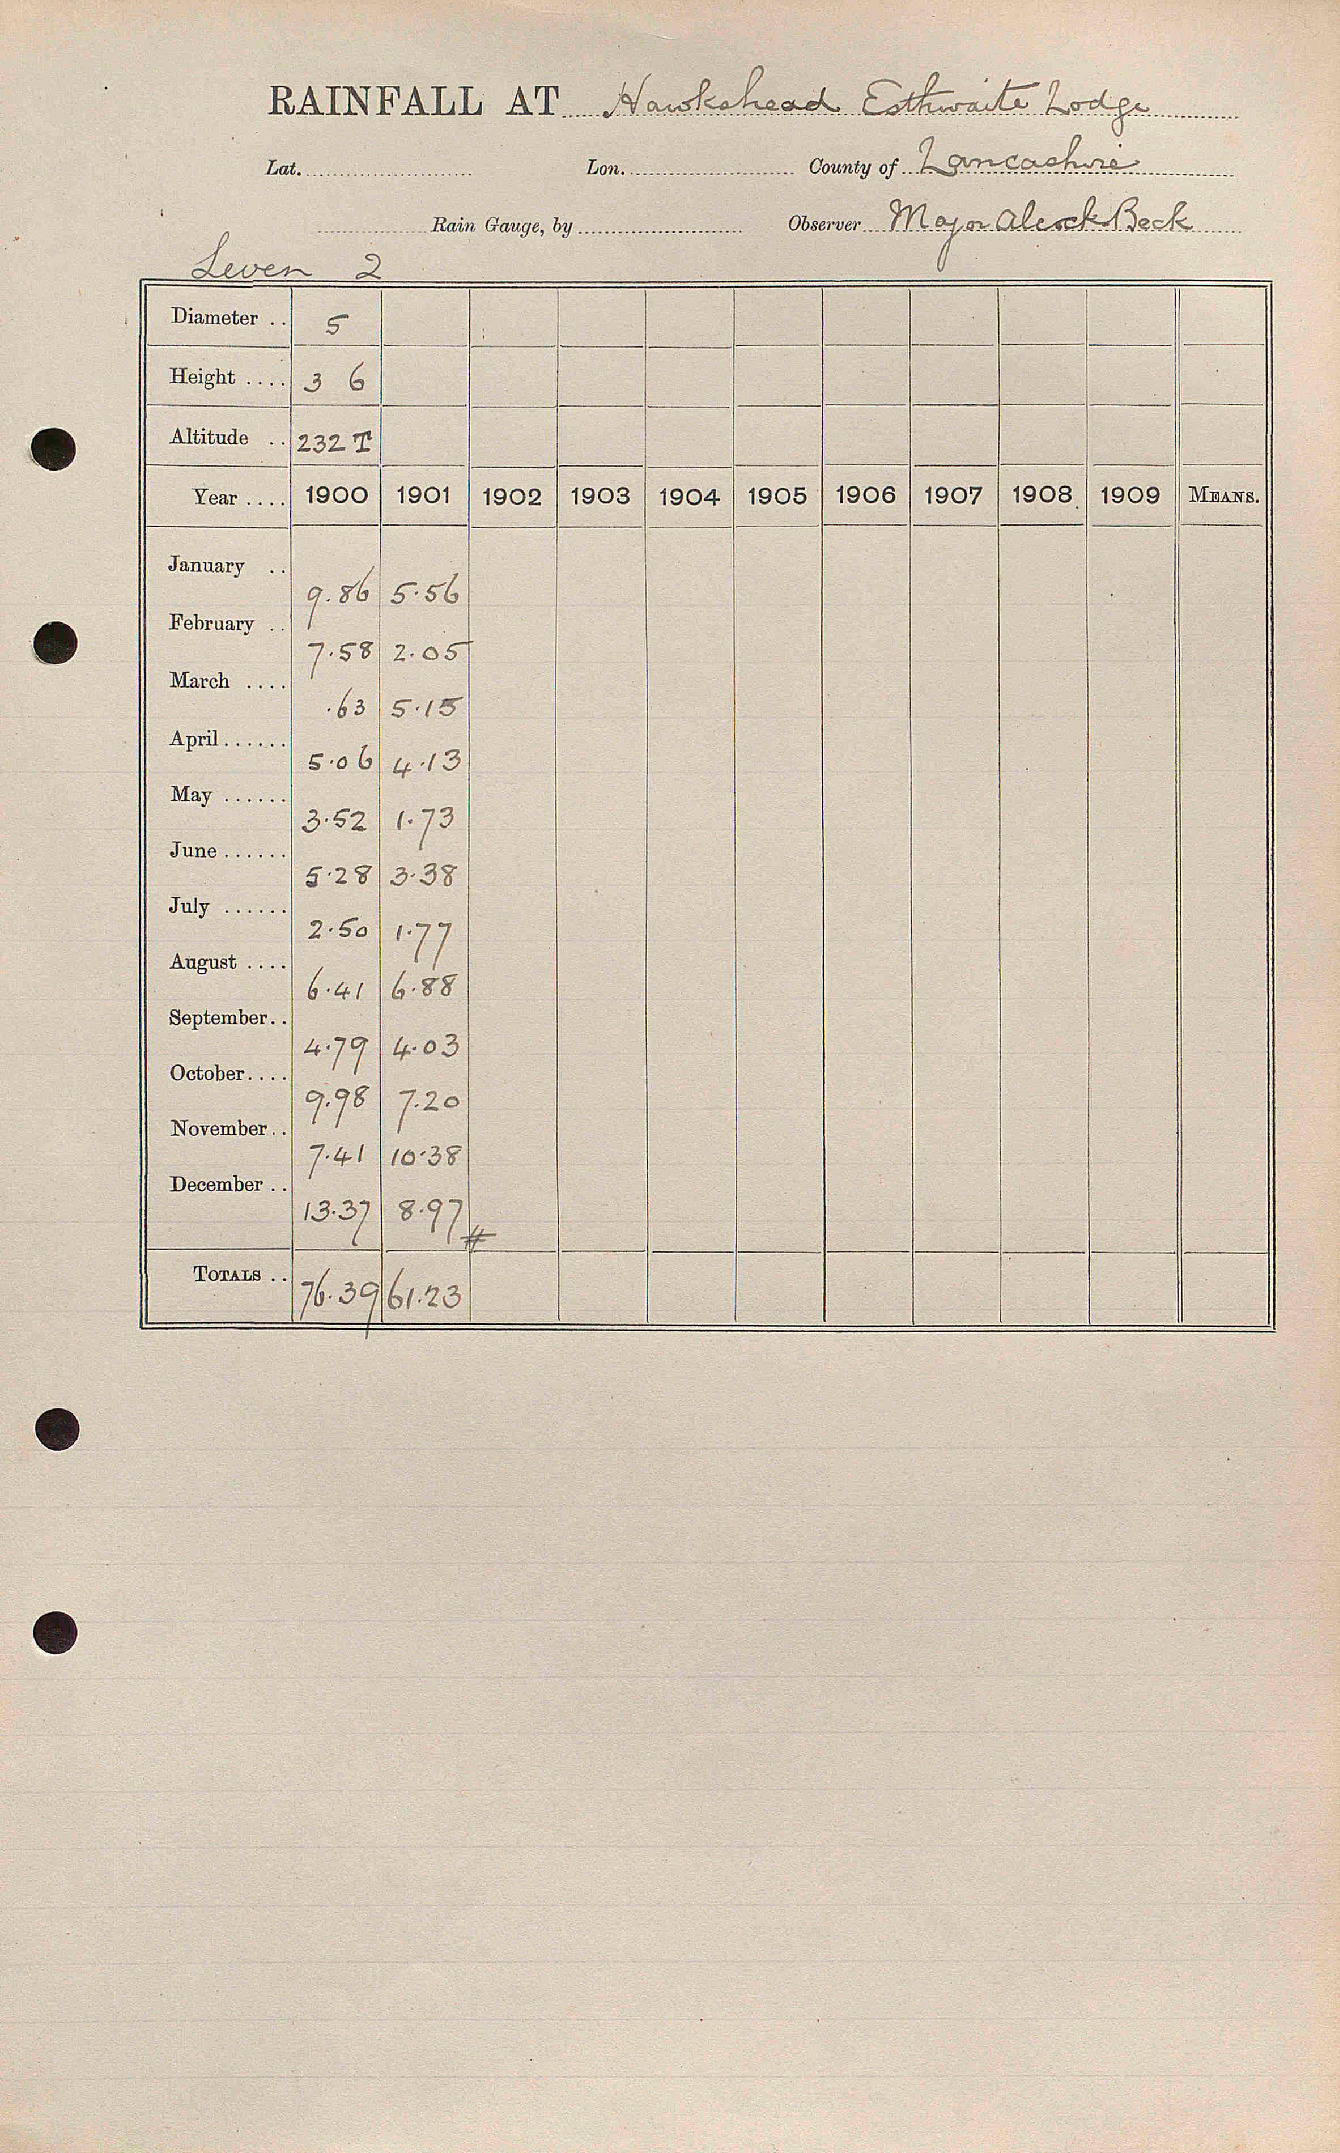 RAINFALL AT Hawkshead Esthwaite Lodge
Lat. Lon. County of Lancashire
Rain Gauge, by Observer Major Alcock Beck
Leven 2
Diameter .. 5
Height .... 3 6
Altitude .. 232 T
Year .... 1900 1901 1902 1903 1904 1905 1906 1907 1908 1909 MEANS.
January .. 9.86 5.56
February .. 7.58 2.05
March .... .63 5.15
April ...... 5.06 4.13
May ...... 3.52 1.73
June ...... 5.28 3.38
July ...... 2.50 1.77
August .... 6.41 6.88
September .. 4.79 4.03
October .... 9.98 7.20
November .. 7.41 10.38
December .. 13.37 8.97 #
TOTALS .. 76.39 61.23